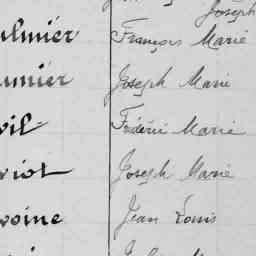 Joseph
ulmier François Marie
umier Joseph Marie
vil Frédéric Marie
riot Joseph Marie
voine Jean Louis